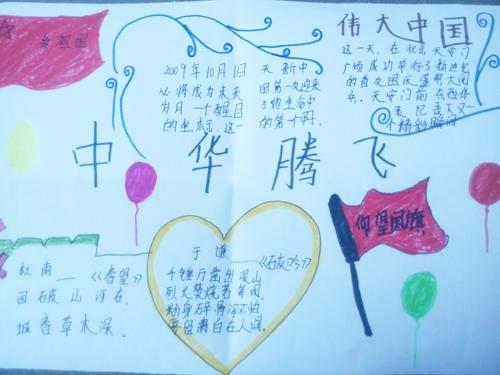 爱祖国
伟大中国
2009年10月1日 天 新中
必将成为未来 国第一次迎来
岁月一个醒目
的坐标,这一
这一天,在北京天安门
广场成功举行了新世纪
的首次国庆盛大阅
兵。天安门前
中华腾飞
仰望国旗
杜甫——《春望》
国破山河在,
城春草木深。
于谦
——《石灰吟》
千锤万凿出深山
烈火焚烧若等闲,
粉身碎骨浑不怕
要留清白在人间。